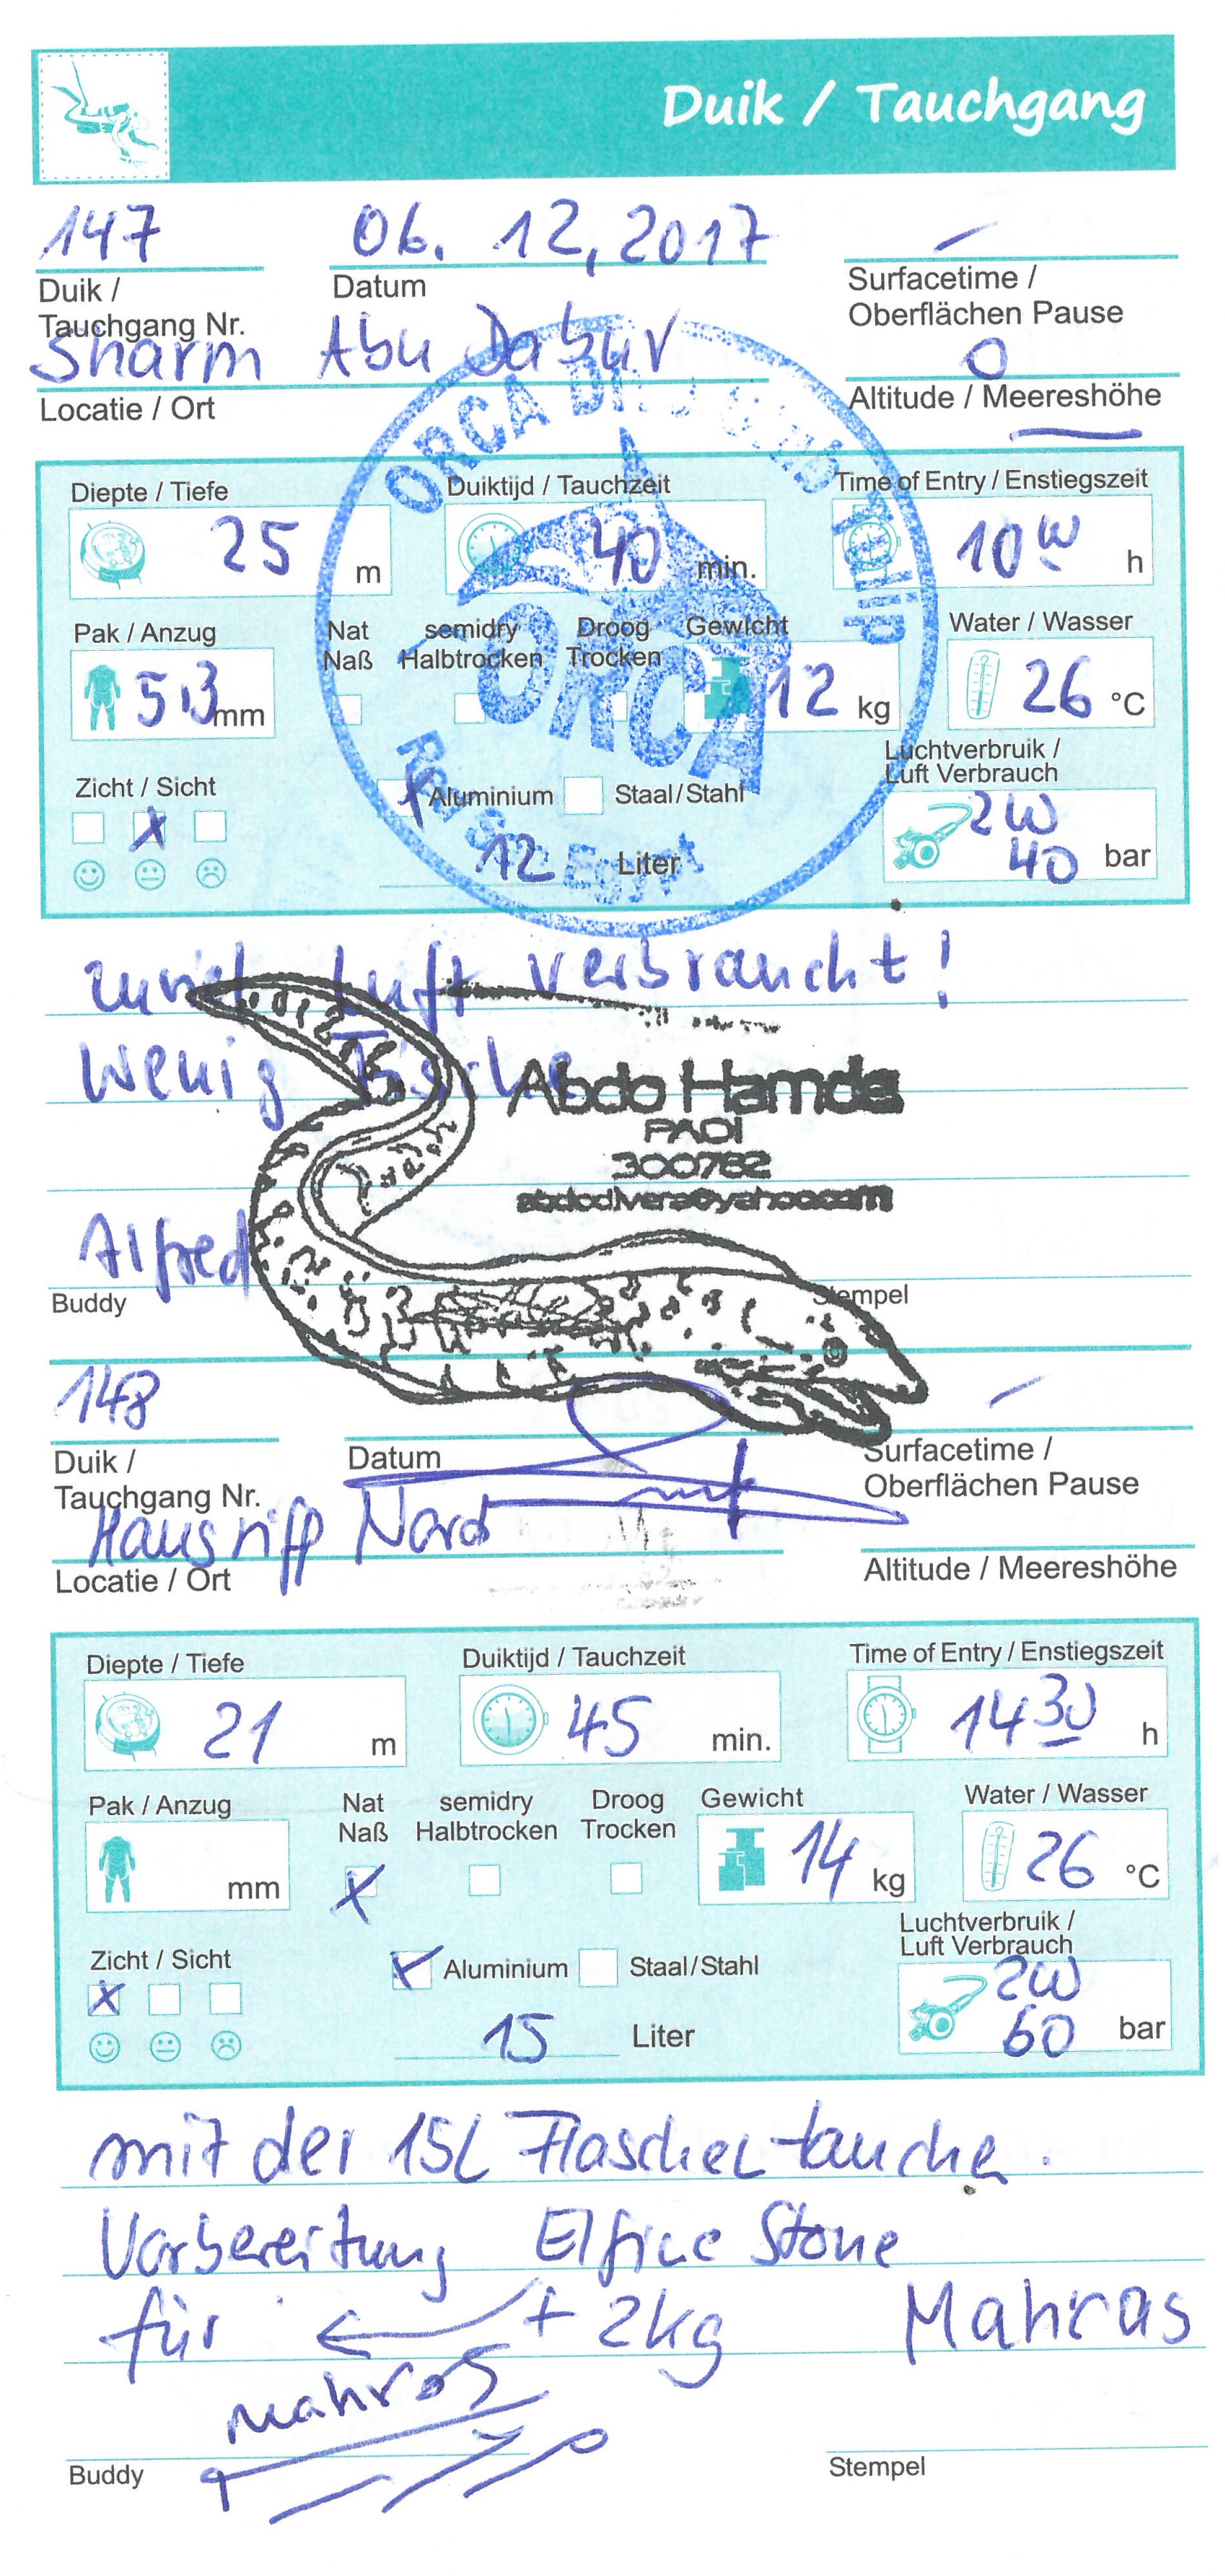 Duik / Tauchgang
147 06. 12, 2017 –
Duik / Datum Surfacetime /
Tauchgang Nr. Oberflächen Pause
Sharm Abu Dabur 0
Locatie / Ort Altitude / Meereshöhe
ORCA
Diepte / Tiefe Duiktijd / Tauchzeit Time of Entry / Enstiegszeit
25 m 40 min. 10 00 h
Pak / Anzug Nat semidry Droog Gewicht Water / Wasser
Naß Halbtrocken Trocken
mm 12 kg 26 °C
ORCA
Luchtverbruik /
Zicht / Sicht X Aluminium Staal/Stahl Luft Verbrauch
X 200
12 Liter 40 bar
Luft verbraucht!
Wenig Fische
Abdo Hamda
PADI
300782
Alfred
Buddy Stempel
148 –
Duik / Datum Surfacetime /
Tauchgang Nr. Oberflächen Pause
Hausriff Nord
Locatie / Ort Altitude / Meereshöhe
Diepte / Tiefe Duiktijd / Tauchzeit Time of Entry / Enstiegszeit
21 m 45 min. 14 30 h
Pak / Anzug Nat semidry Droog Gewicht Water / Wasser
Naß Halbtrocken Trocken
mm X 14 kg 26 °C
Luchtverbruik /
Zicht / Sicht X Aluminium Staal/Stahl Luft Verbrauch
X 200
15 Liter 60 bar
mit der 15L Flasche tauche.
Vorbereitung Stone
für + 2kg Mahras
Mahros
Buddy Stempel